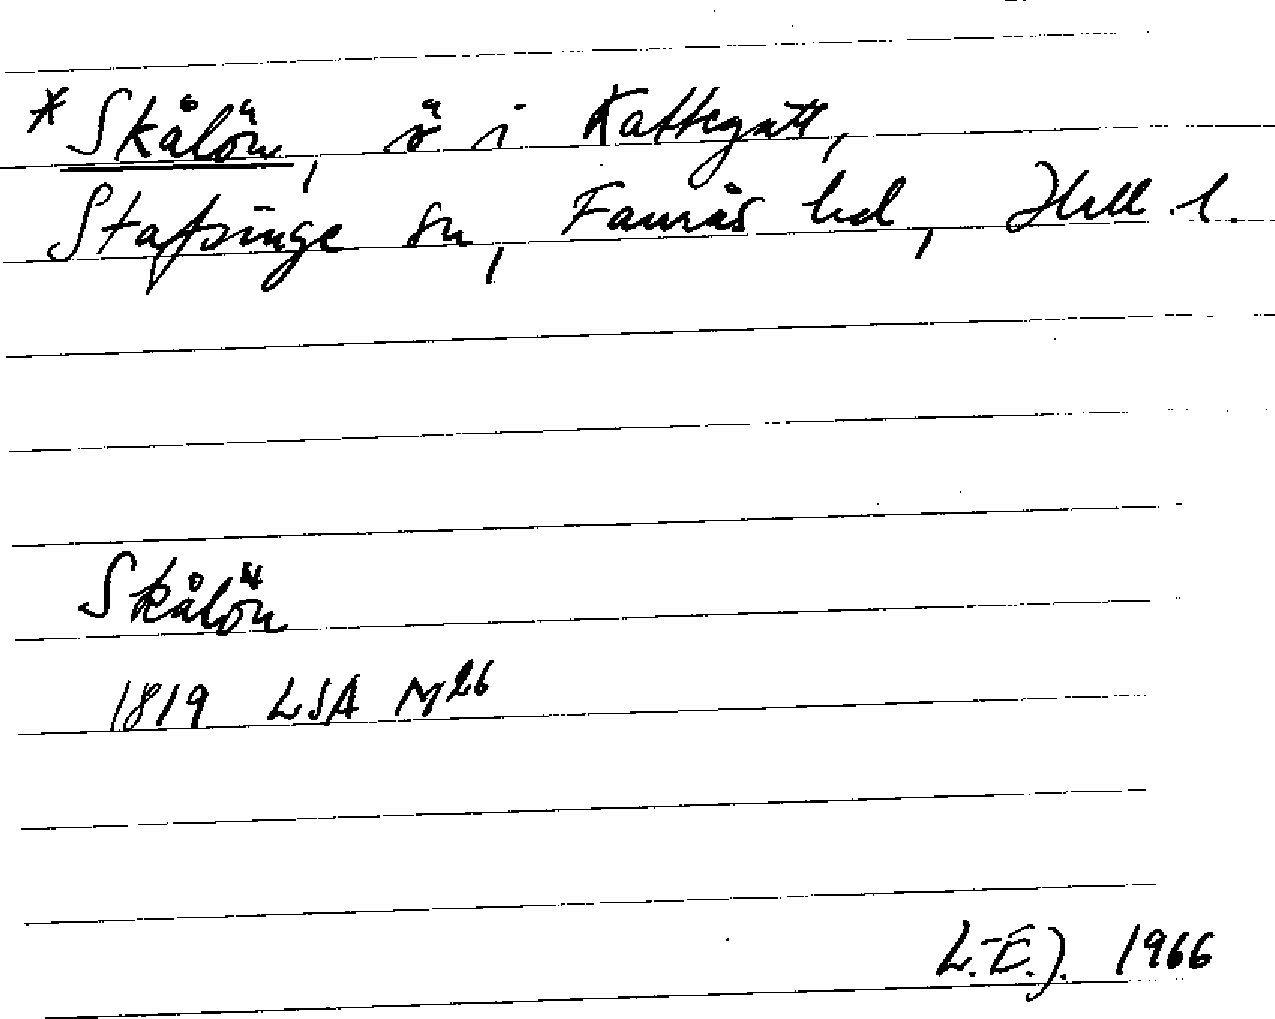 * Skålön, ö i Kattegatt,
Stafsinge sn, Faurås hd, Hall. l.
Skålön
1819 LSA N26
L.E.J. 1966